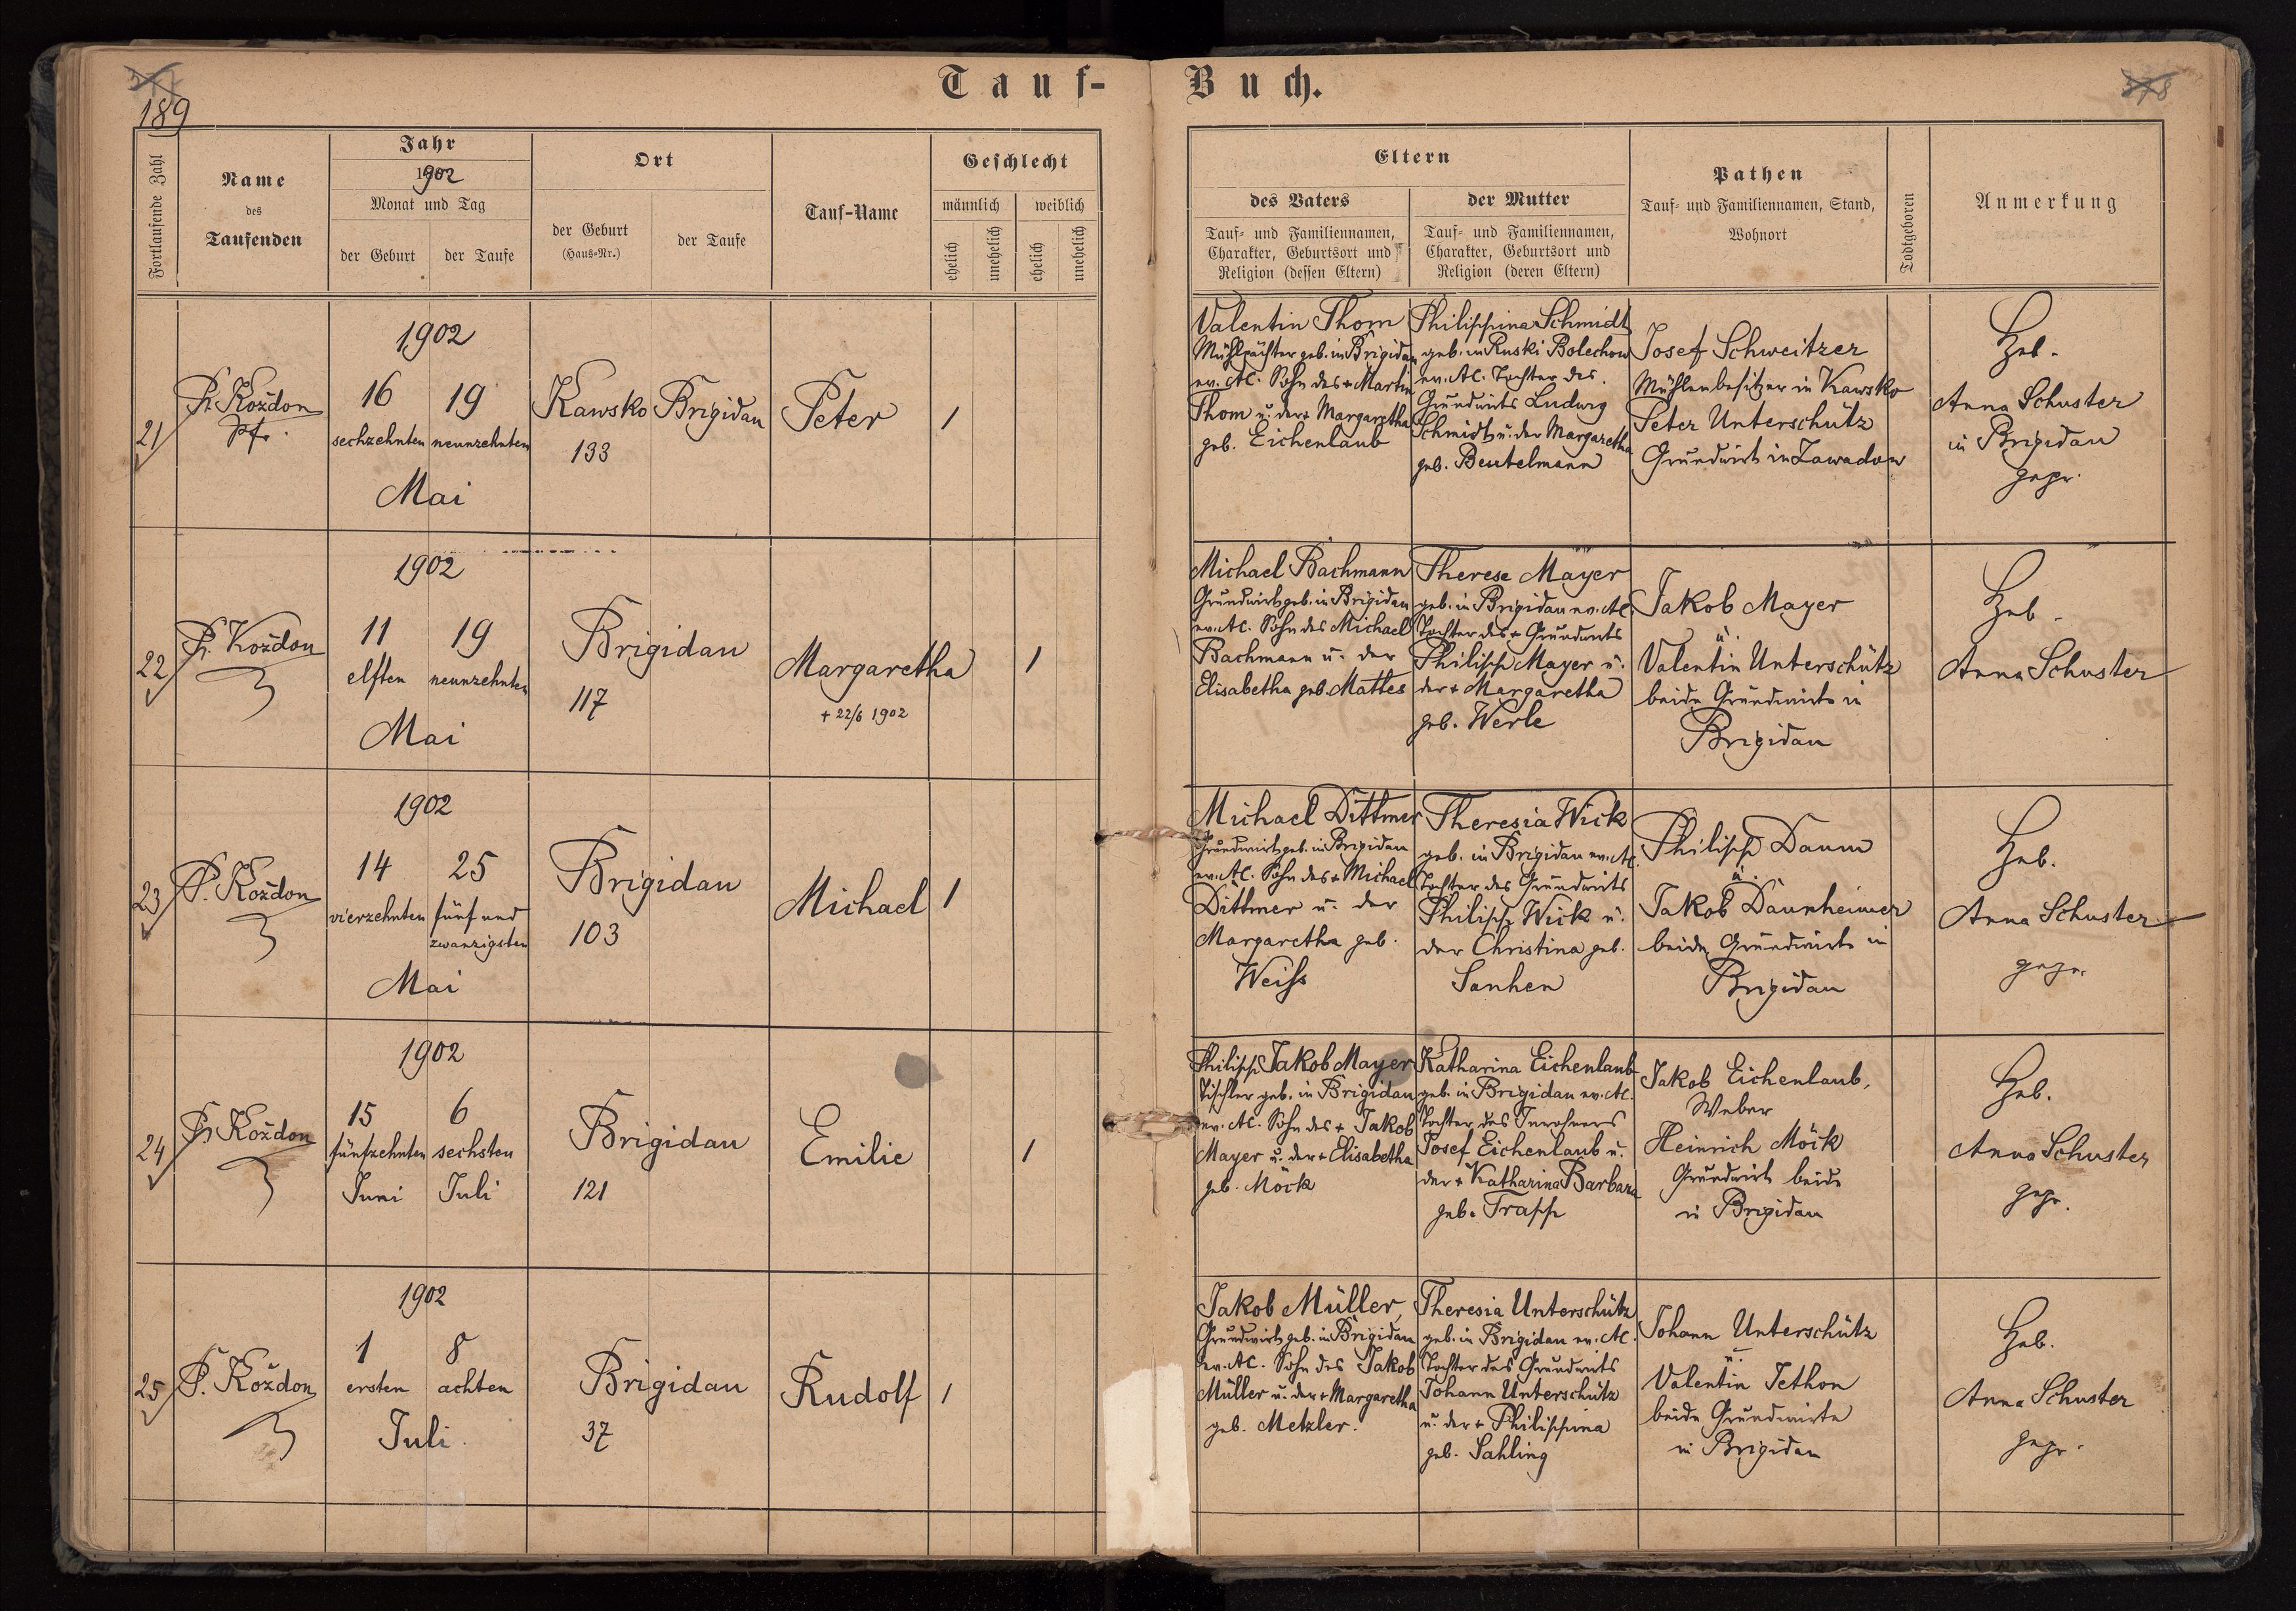 Tauf-Buch.
189
378
Fortlaufende Zahl
Name
des
Taufenden
Jahr
1902
Monat und Tag
der Geburt
der Taufe
Ort
der Geburt
(Haus-Nr.)
der Taufe
Tauf-Name
Geschlecht
männlich
weiblich
ehelich
unehelich
ehelich
unehelich
Eltern
des Vaters
Tauf- und Familiennamen,
Charakter, Geburtsort und
Religion (dessen Eltern)
der Mutter
Tauf- und Familiennamen,
Charakter, Geburtsort und
Religion (deren Eltern)
Pathen
Tauf- und Familiennamen, Stand,
Wohnort
Todtgeboren
Anmerkung
21
P. Koždon
Pfr.
1902
16 19
sechzehnten neunzehnten
Mai
Kawsko Brigidau
133
Peter
1
Valentin Thom
Mühlpächter geb. in Brigidau
ev. AC. Sohn des + Martin
Thom u. der + Margaretha
geb. Eichenlaub
Philippina Schmidt
geb. in Ruski Bolechow
ev. AC. Tochter des
Grundwirts Ludwig
Schmidt u. der Margaretha
geb. Beutelmann
Josef Schweitzer
Mühlenbesitzer in Kawsko
Peter Unterschütz
Grundwirt in Zawadow
Heb.
Anna Schuster
in Brigidau
gepr.
22
P. Koždon
1902
11 19
elften neunzehnten
Mai
Brigidau
117
Margaretha
+ 22/6 1902
1
Michael Bachmann
Grundwirt geb. in Brigidau
ev. AC. Sohn des Michael
Bachmann u. der
Elisabetha geb. Mattes
Therese Mayer
geb. in Brigidau ev. AC.
Tochter des + Grundwirts
Philipp Mayer u.
der + Margaretha
geb. Werle
Jakob Mayer
u.
Valentin Unterschütz
beide Grundwirte in
Brigidau
Heb.
Anna Schuster
23
P. Koždon
1902
14 25
vierzehnten fünf und
zwanzigsten
Mai
Brigidau
103
Michael
1
Michael Dittmer
Grundwirt geb. in Brigidau
ev. AC. Sohn des + Michael
Dittmer u. der
Margaretha geb.
Weiss
Theresia Wick
geb. in Brigidau ev. AC.
Tochter des Grundwirts
Philipp Wick u.
der Christina geb.
Sanhen
Philipp Daum
u.
Jakob Daunheimer
beide Grundwirte in
Brigidau
Heb.
Anna Schuster
gepr.
24
P. Koždon
1902
15 6
fünfzehnten sechsten
Juni Juli
Brigidau
121
Emilie
1
Philipp Jakob Mayer
Tischler geb. in Brigidau
ev. AC. Sohn des + Jakob
Mayer u. der + Elisabetha
geb. Möck
Katharina Eichenlaub
geb. in Brigidau ev. AC.
Tochter des Inwohners
Josef Eichenlaub u.
der + Katharina Barbara
geb. Trapp
Jakob Eichenlaub,
Weber
Heinrich Möck
Grundwirt beide
in Brigidau
Heb.
Anna Schuster
gepr.
25
P. Koždon
1902
1 8
ersten achten
Juli
Brigidau
37
Rudolf
1
Jakob Müller
Grundwirt geb. in Brigidau
ev. AC. Sohn des Jakob
Müller u. der + Margaretha
geb. Metzler.
Theresia Unterschütz
geb. in Brigidau ev. AC.
Tochter des Grundwirts
Johann Unterschütz
u. der + Philippina
geb. Sahling
Johann Unterschütz
u.
Valentin Jethon
beide Grundwirte
in Brigidau
Heb.
Anna Schuster
gepr.